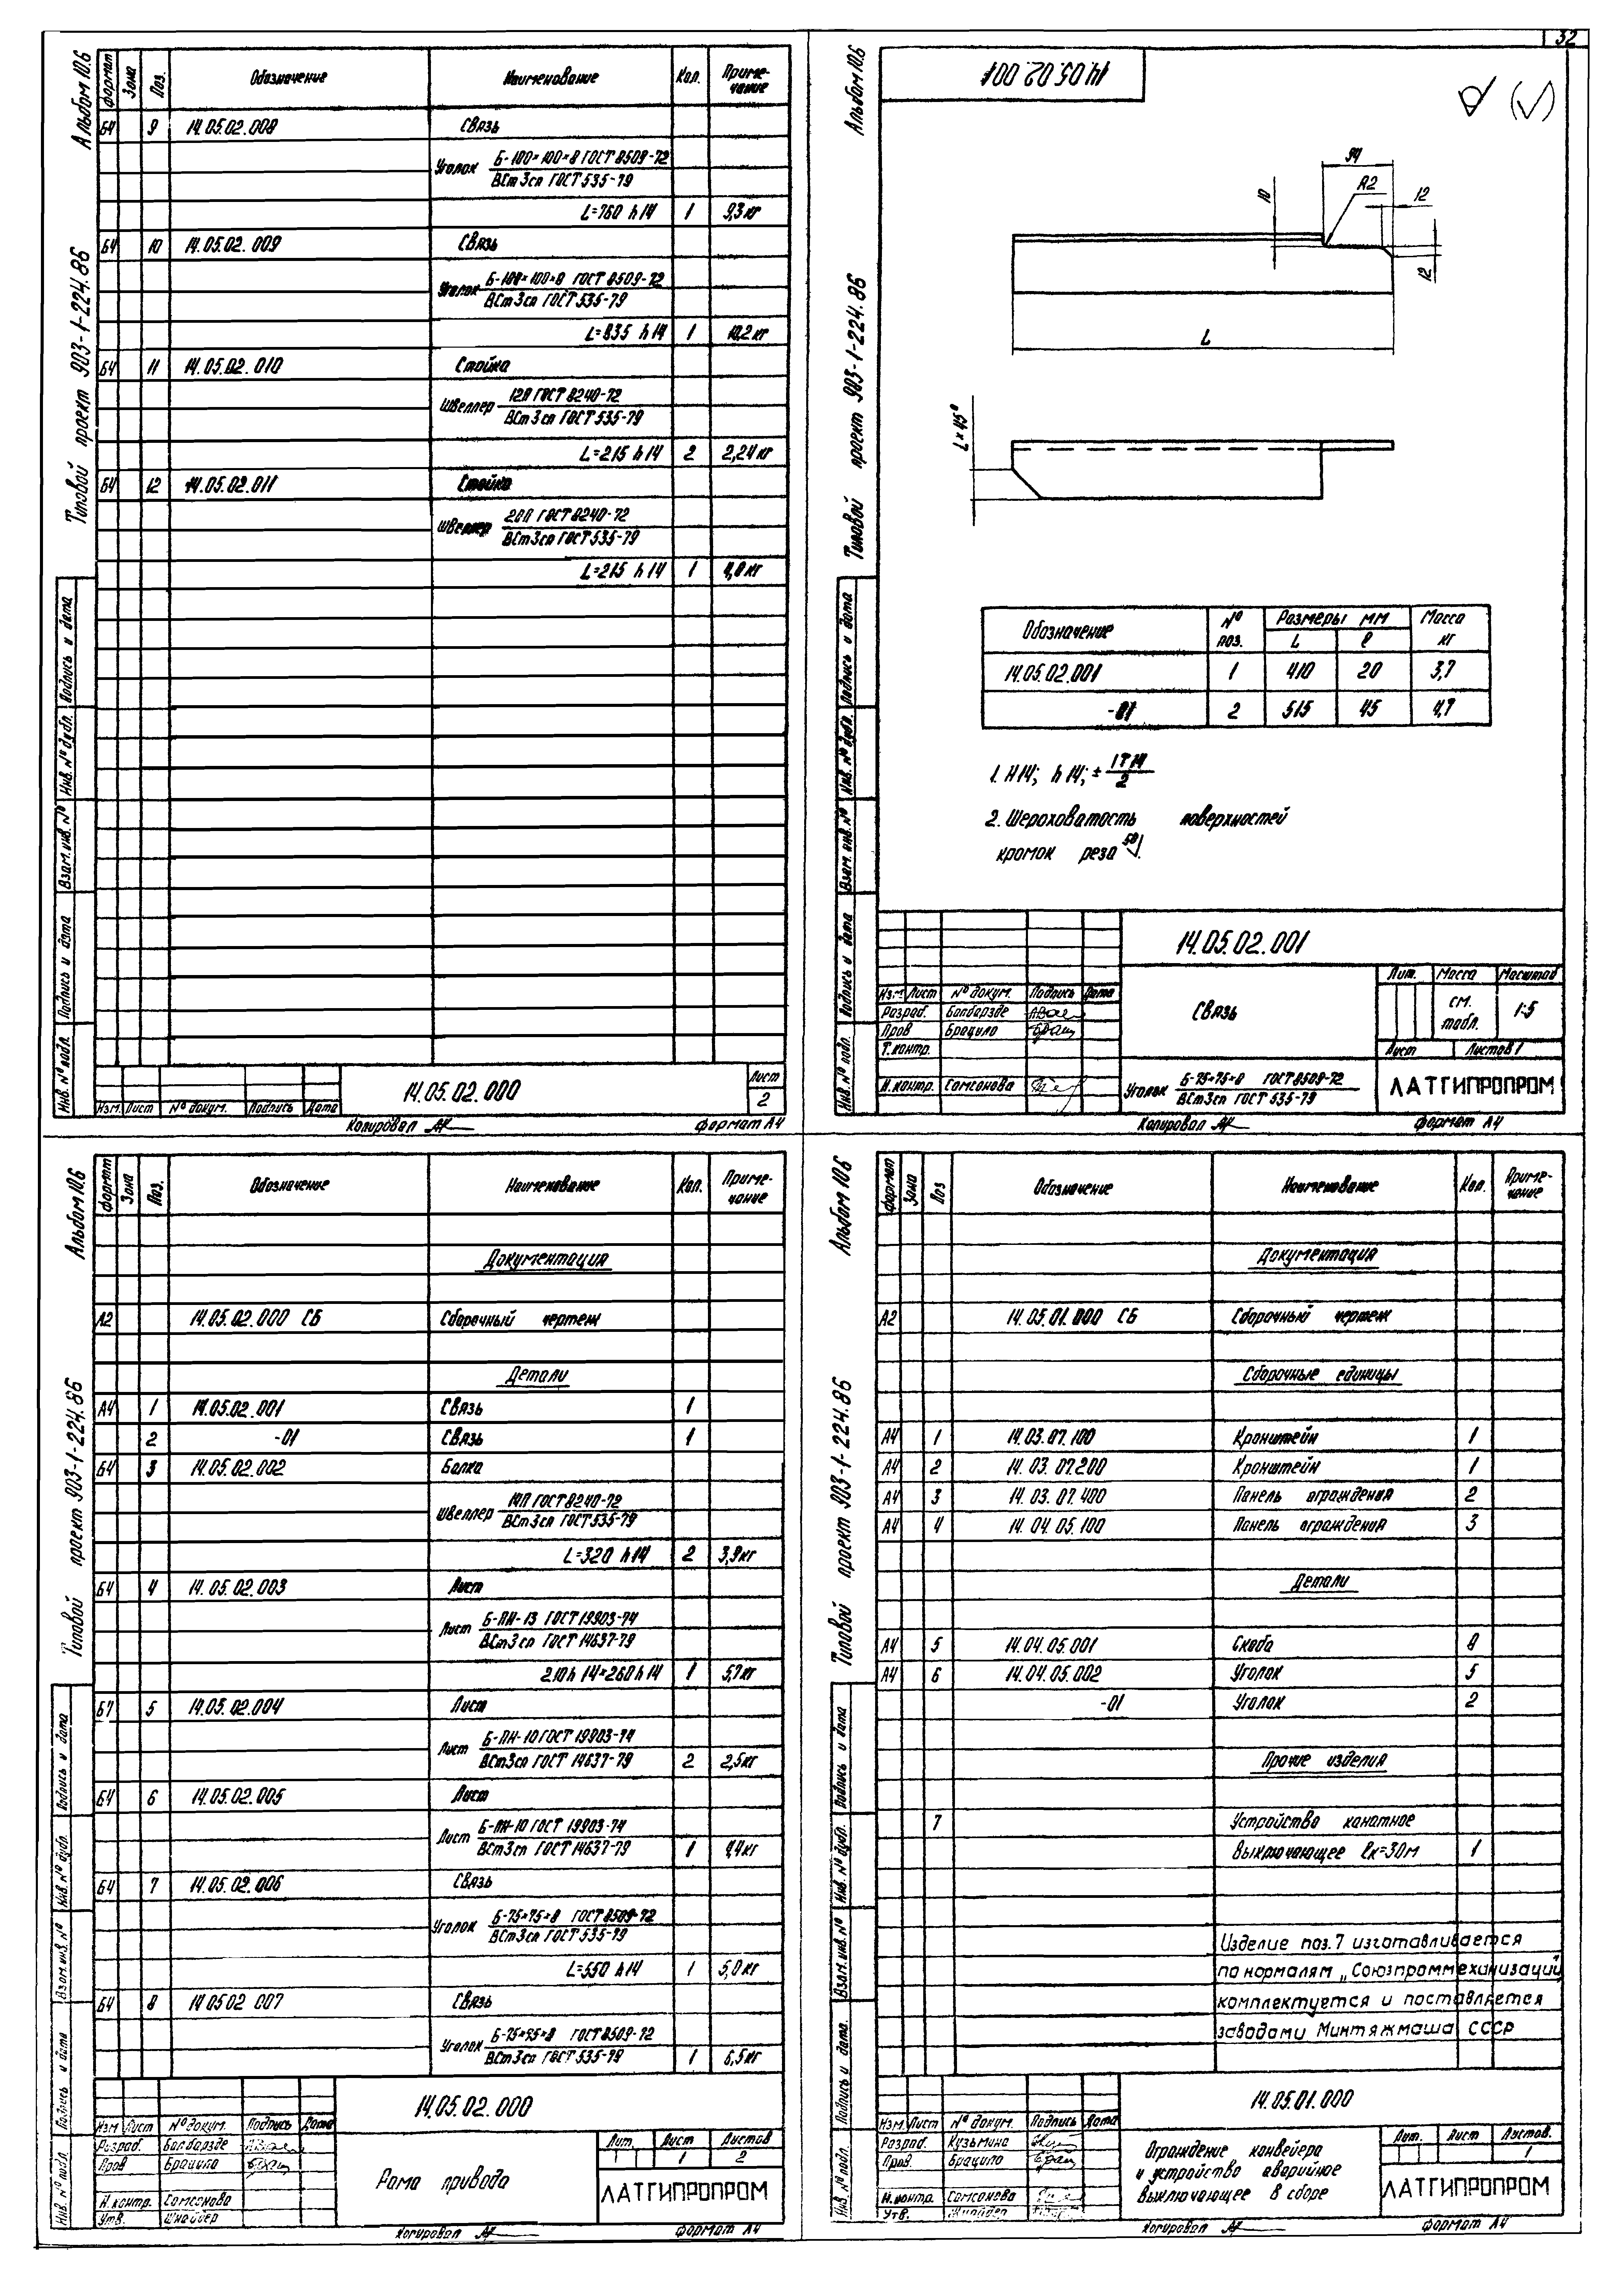 32
Альбом 10.6
Типовой проект 903-1-224.86
Формат Зона Поз. Обозначение Наименование Кол. Примечание
Б4 9 14.05.02.008 Связь
Уголок Б-100×100×8 ГОСТ 8509-72
ВСт3сп ГОСТ 535-79
L=760 h14 1 9,3кг
Б4 10 14.05.02.009 Связь
Уголок Б-100×100×8 ГОСТ 8509-72
ВСт3сп ГОСТ 535-79
L=835 h14 1 10,2кг
Б4 11 14.05.02.010 Стойка
Швеллер 12П ГОСТ 8240-72
ВСт3сп ГОСТ 535-79
L=215 h14 2 2,24кг
Б4 12 14.05.02.011 Стойка
Швеллер 20П ГОСТ 8240-72
ВСт3сп ГОСТ 535-79
L=215 h14 1 4,0кг
Инв. № подл. Подпись и дата Взам. инв. № Инв. № дубл. Подпись и дата
Изм. Лист № докум. Подпись Дата
14.05.02.000
Лист
2
Копировал
Формат А4
Альбом 10.6
Типовой проект 903-1-224.86
14.05.02.001
94
R2
12
10
12
L
L×45°
Обозначение № поз. Размеры мм Масса кг
L ℓ
14.05.02.001 1 410 20 3,7
-01 2 515 45 4,7
1. Н14; h14; ± IT14
2
2. Шероховатость поверхностей
кромок реза 50
Инв. № подл. Подпись и дата Взам. инв. № Инв. № дубл. Подпись и дата
14.05.02.001
Изм. Лист № докум. Подпись Дата
Разраб. Балбарзде
Пров Брацило
Т.контр.
Н.контр. Самсонова
Связь
Лит. Масса Масштаб
см. табл. 1:5
Лист Листов 1
Уголок Б-75×75×8 ГОСТ 8509-72
ВСт3сп ГОСТ 535-79
ЛАТГИПРОПРОМ
Копировал
Формат А4
Альбом 10.6
Типовой проект 903-1-224.86
Формат Зона Поз. Обозначение Наименование Кол. Примечание
Документация
А2 14.05.02.000 СБ Сборочный чертеж
Детали
А4 1 14.05.02.001 Связь 1
2 -01 Связь 1
Б4 3 14.05.02.002 Балка
Швеллер 14П ГОСТ 8240-72
ВСт3сп ГОСТ 535-79
L=320 h14 2 3,9кг
Б4 4 14.05.02.003 Лист
Лист Б-ПН-13 ГОСТ 19903-74
ВСт3сп ГОСТ 14637-79
210h14×260h14 1 5,7кг
Б4 5 14.05.02.004 Лист
Лист Б-ПН-10 ГОСТ 19903-74
ВСт3сп ГОСТ 14637-79 2 2,5кг
Б4 6 14.05.02.005 Лист
Лист Б-ПН-10 ГОСТ 19903-74
ВСт3сп ГОСТ 14637-79 1 4,4кг
Б4 7 14.05.02.006 Связь
Уголок Б-75×75×8 ГОСТ 8509-72
ВСт3сп ГОСТ 535-79
L=550 h14 1 5,0кг
Б4 8 14.05.02 007 Связь
Уголок Б-75×75×8 ГОСТ 8509-72
ВСт3сп ГОСТ 535-79 1 6,5кг
Инв. № подл. Подпись и дата Взам. инв. № Инв. № дубл. Подпись и дата
14.05.02.000
Изм Лист № докум. Подпись Дата
Разраб. Балбарзде
Пров Брацило
Н.контр. Самсонова
Утв. Шнайдер
Рама привода
Лит. Лист Листов
1 2
ЛАТГИПРОПРОМ
Копировал
Формат А4
Альбом 10.6
Типовой проект 903-1-224.86
Формат Зона Поз Обозначение Наименование Кол. Примечание
Документация
А2 14.05.01.000 СБ Сборочный чертеж
Сборочные единицы
А4 1 14.03.07.100 Кронштейн 1
А4 2 14.03.07.200 Кронштейн 1
А4 3 14.03.07.400 Панель ограждения 2
А4 4 14.04.05.100 Панель ограждения 3
Детали
А4 5 14.04.05.001 Скоба 8
А4 6 14.04.05.002 Уголок 5
-01 Уголок 2
Прочие изделия
7 Устройство канатное
выключающее ℓк=30м 1
Изделие поз.7 изготавливается
по нормалям „Союзпроммеханизации
комплектуется и поставляется
заводами Минтяжмаша СССР
Инв. № подл. Подпись и дата Взам. инв. № Инв. № дубл. Подпись и дата
14.05.01.000
Изм. Лист № докум. Подпись Дата
Разраб. Кузьмина
Пров. Брацило
Н.контр. Самсонова
Утв. Шнайдер
Ограждение конвейера
и устройство аварийное
выключающее в сборе
Лит. Лист Листов.
1
ЛАТГИПРОПРОМ
Копировал
Формат А4